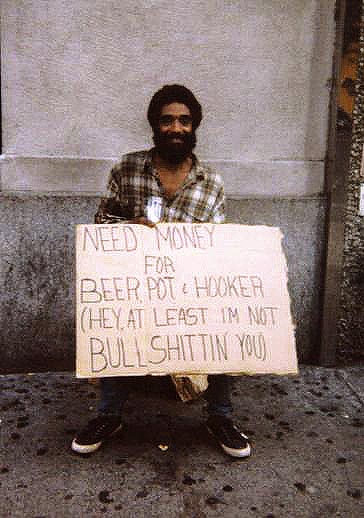 NEED MONEY
FOR
BEER, POT & HOOKER
(HEY, AT LEAST I'M NOT
BULLSHITTIN YOU)